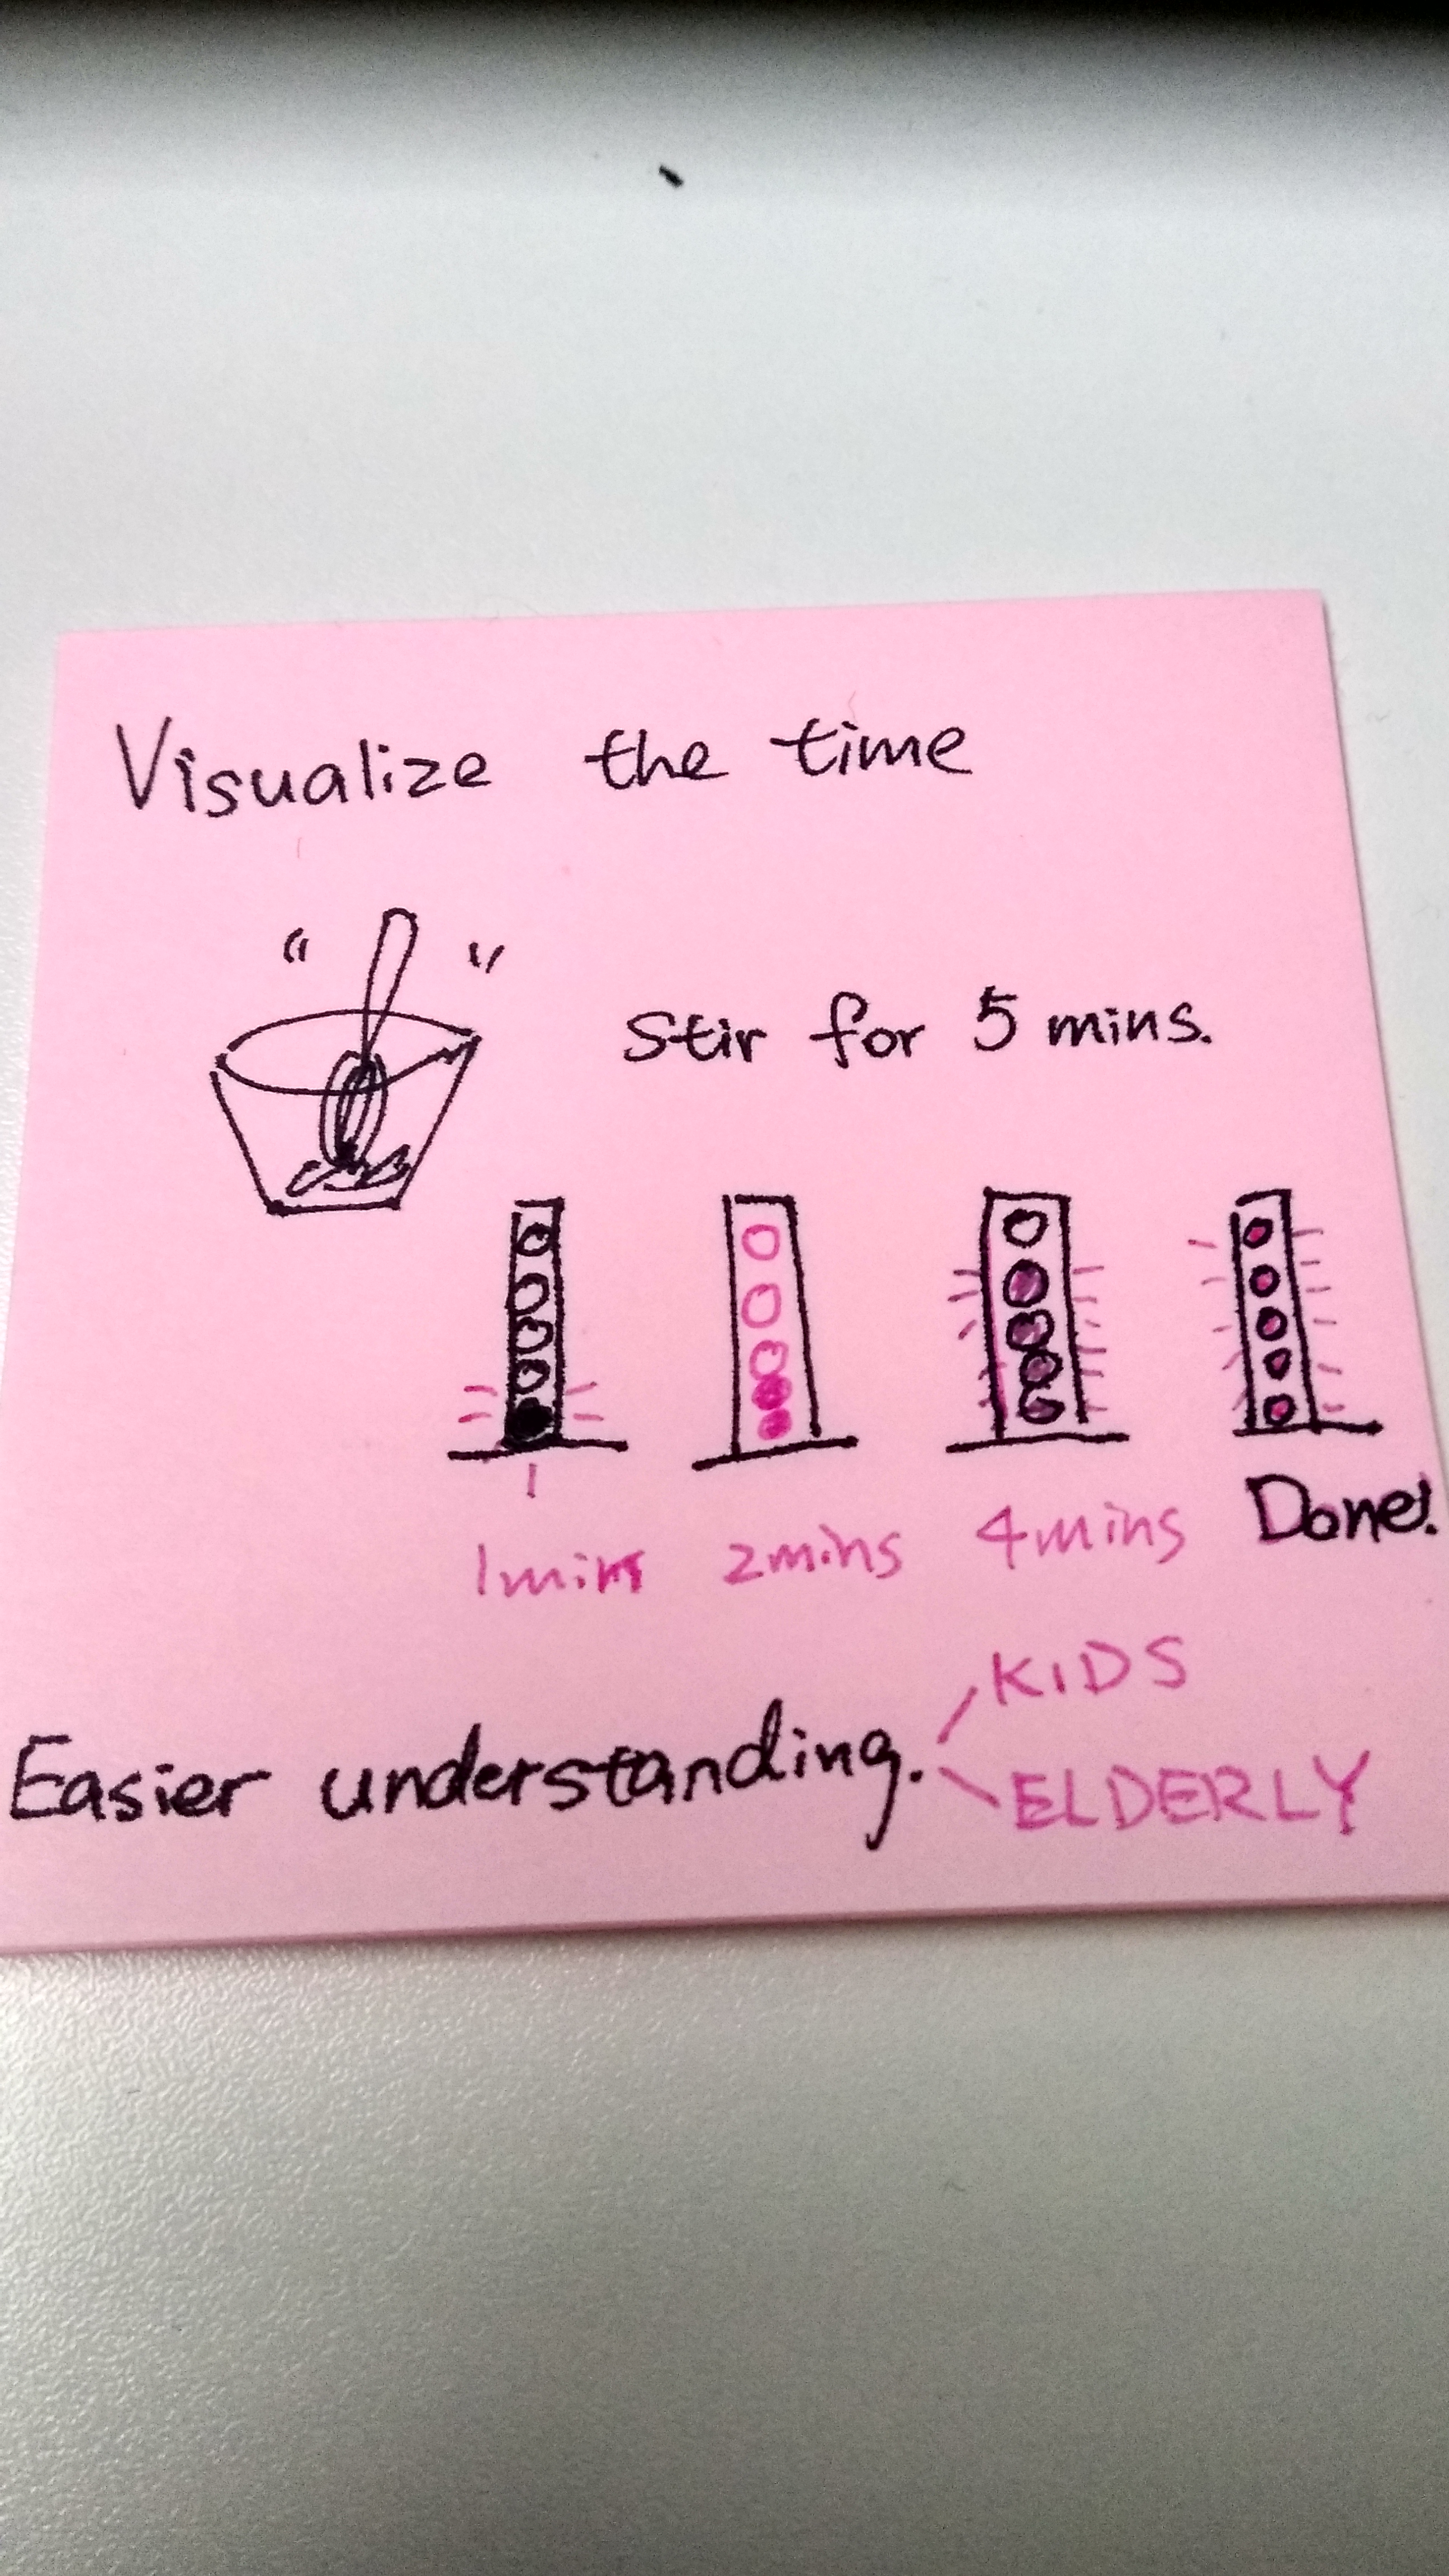 Visualize the time
Stir for 5 mins.
1mins 2mins 4mins Done!
KIDS
Easier understanding.
ELDERLY